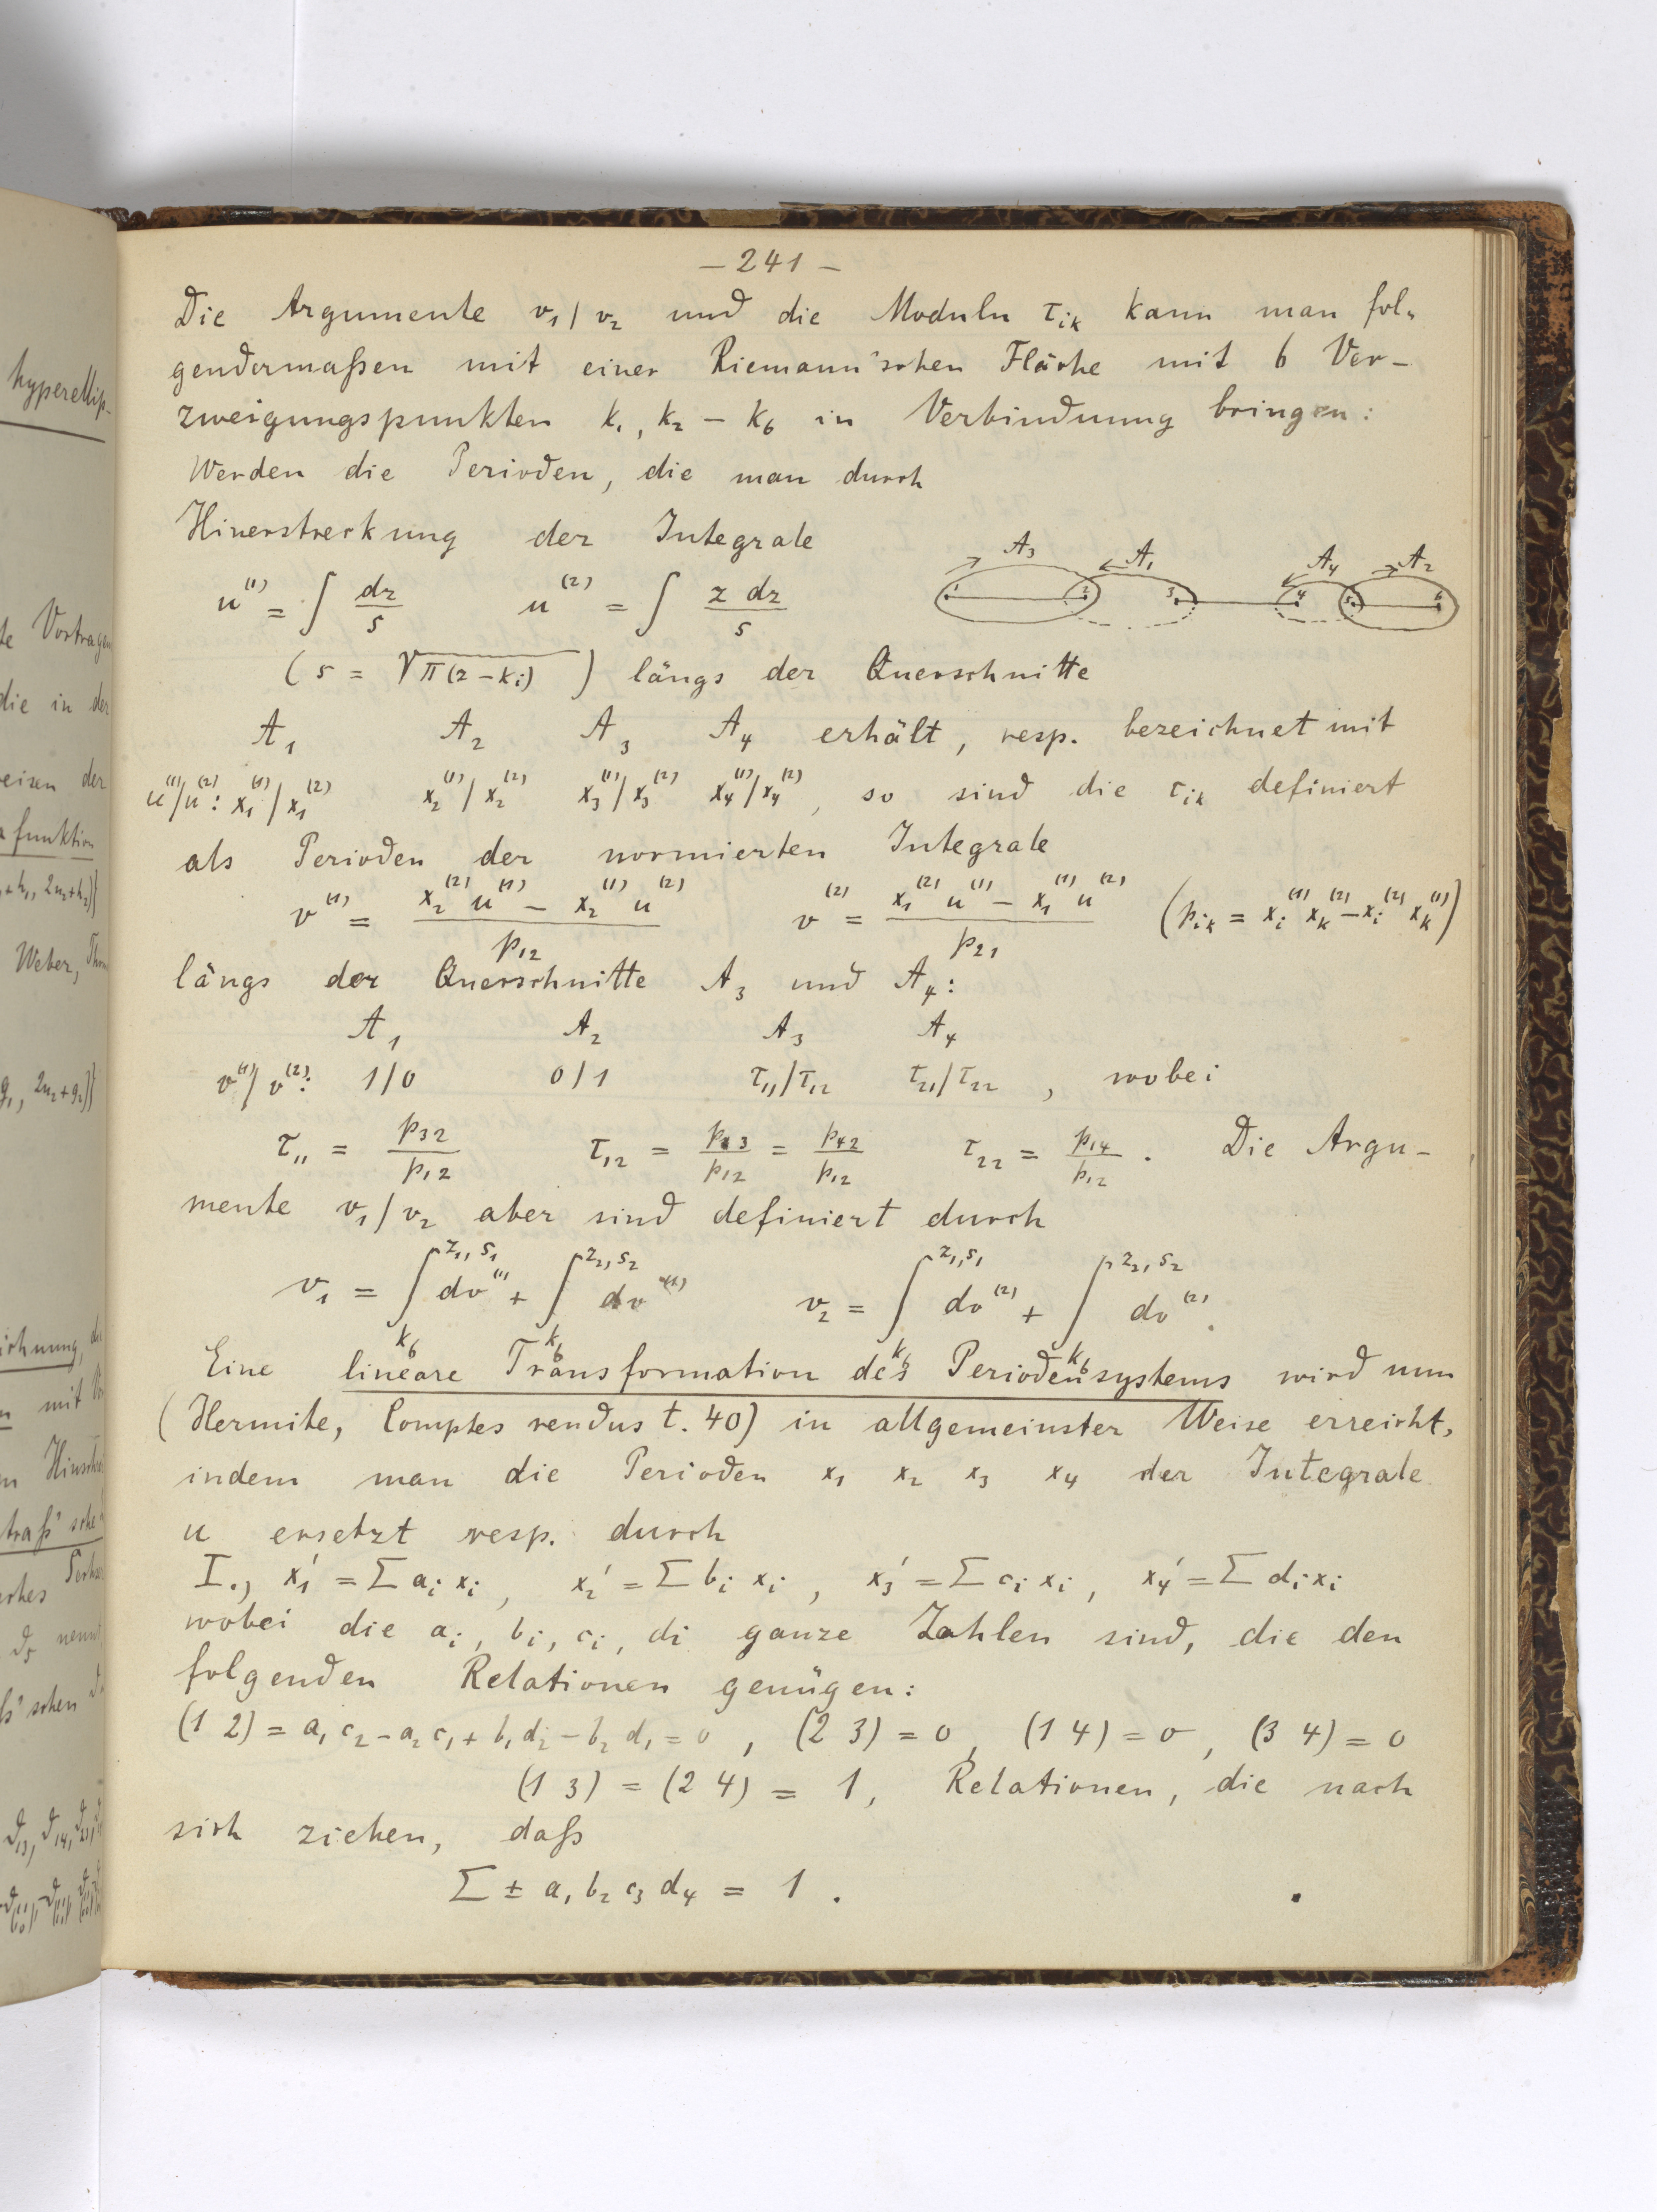 – 241 –
Die Argumente v₁/v₂ und die Moduln τᵢₖ kann man fol-
gendermaßen mit einer Riemann'schen Fläche mit 6 Ver-
zweigungspunkten k₁, k₂ – k₆ in Verbindung bringen:
Werden die Perioden, die man durch
Hinerstreckung der Integrale
u⁽¹⁾ = ∫ dz/s   u⁽²⁾ = ∫ z dz/s
A₃ A₁ A₄ A₂
1 2 3 4 5 6
(s = √π(z – kᵢ)) längs der Querschnitte
A₁ A₂ A₃ A₄ erhält, resp. bezeichnet mit
u⁽¹⁾/u⁽²⁾: x₁⁽¹⁾/x₁⁽²⁾ x₂⁽¹⁾/x₂⁽²⁾ x₃⁽¹⁾/x₃⁽²⁾ x₄⁽¹⁾/x₄⁽²⁾, so sind die τᵢₖ definiert
als Perioden der normierten Integrale
v⁽¹⁾ = (x₂⁽²⁾ u⁽¹⁾ – x₂⁽¹⁾ u⁽²⁾)/p₁₂   v⁽²⁾ = (x₁⁽²⁾ u⁽¹⁾ – x₁⁽¹⁾ u⁽²⁾)/p₂₁   (pᵢₖ = xᵢ⁽¹⁾ xₖ⁽²⁾ – xᵢ⁽²⁾ xₖ⁽¹⁾)
längs der Querschnitte A₃ und A₄:
A₁ A₂ A₃ A₄
v⁽¹⁾/v⁽²⁾: 1/0 0/1 τ₁₁/τ₁₂ τ₂₁/τ₂₂, wobei
τ₁₁ = p₃₂/p₁₂   τ₁₂ = p₁₃/p₁₂ = p₄₂/p₁₂   τ₂₂ = p₁₄/p₁₂. Die Argu-
mente v₁/v₂ aber sind definiert durch
v₁ = ∫_{k₆}^{z₁, s₁} dv⁽¹⁾ + ∫_{k₆}^{z₂, s₂} dv⁽¹⁾   v₂ = ∫_{k₆}^{z₁, s₁} dv⁽²⁾ + ∫_{k₆}^{z₂, s₂} dv⁽²⁾.
Eine lineare Transformation des Periodensystems wird nun
(Hermite, Comptes rendus t. 40) in allgemeinster Weise erreicht,
indem man die Perioden x₁ x₂ x₃ x₄ der Integrale
u ersetzt resp. durch
I.) x₁' = Σ aᵢ xᵢ, x₂' = Σ bᵢ xᵢ, x₃' = Σ cᵢ xᵢ, x₄' = Σ dᵢ xᵢ
wobei die aᵢ, bᵢ, cᵢ, di ganze Zahlen sind, die den
folgenden Relationen genügen:
(1 2) = a₁ c₂ – a₂ c₁ + b₁ d₂ – b₂ d₁ = 0, (2 3) = 0, (1 4) = 0, (3 4) = 0
(1 3) = (2 4) = 1, Relationen, die nach
sich ziehen, daß
Σ ± a₁ b₂ c₃ d₄ = 1.